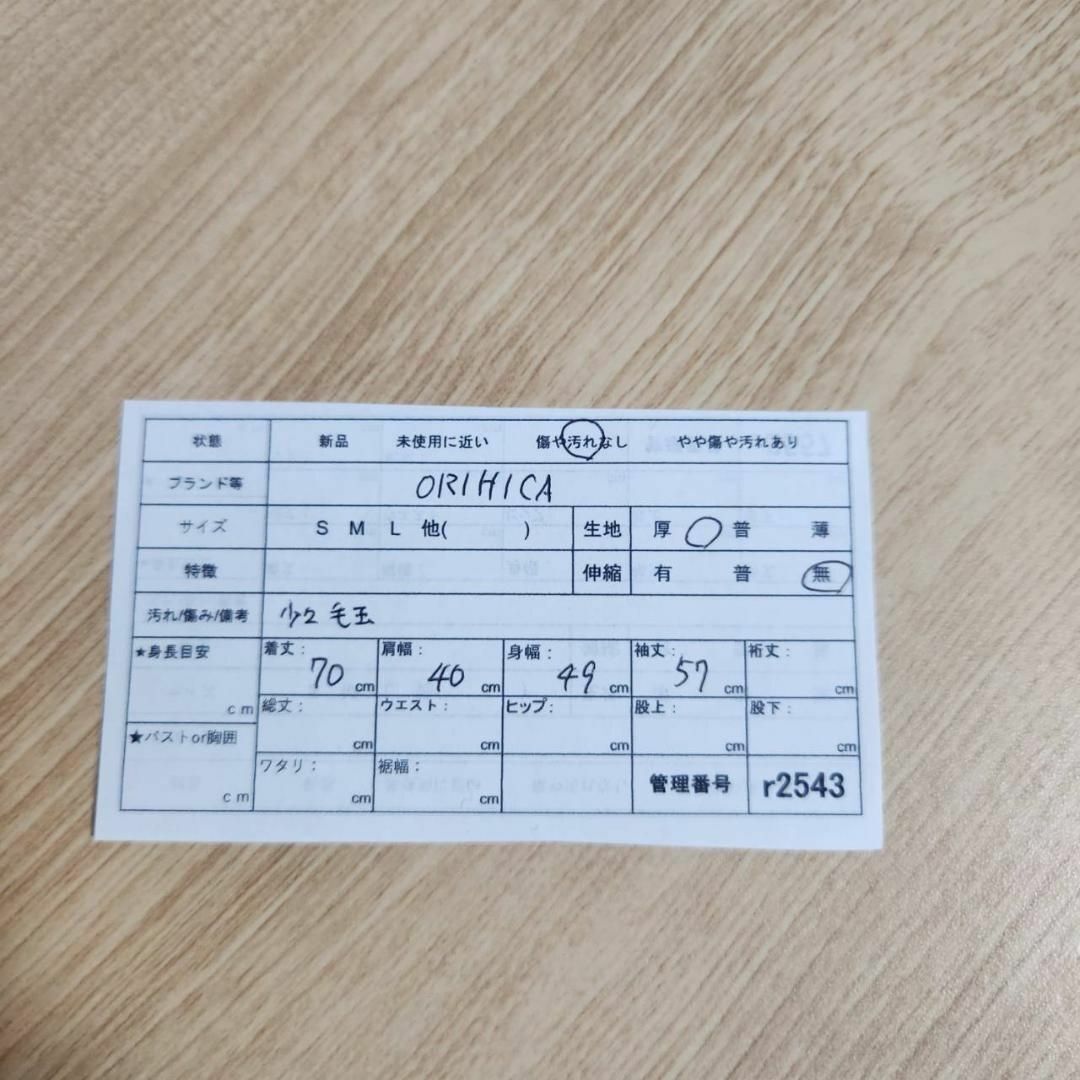 状態 新品 未使用に近い 傷や汚れなし やや傷や汚れあり
ブランド等 ORIHICA
サイズ S M L 他( ) 生地 厚 普 薄
特徴 伸縮 有 普 無
汚れ/傷み/備考 少々毛玉
★身長目安 cm 着丈: 70 cm 肩幅: 40 cm 身幅: 49 cm 袖丈: 57 cm 裄丈: cm
総丈: cm ウエスト: cm ヒップ: cm 股上: cm 股下: cm
★バストor胸囲 cm ワタリ: cm 裾幅: cm 管理番号 r2543